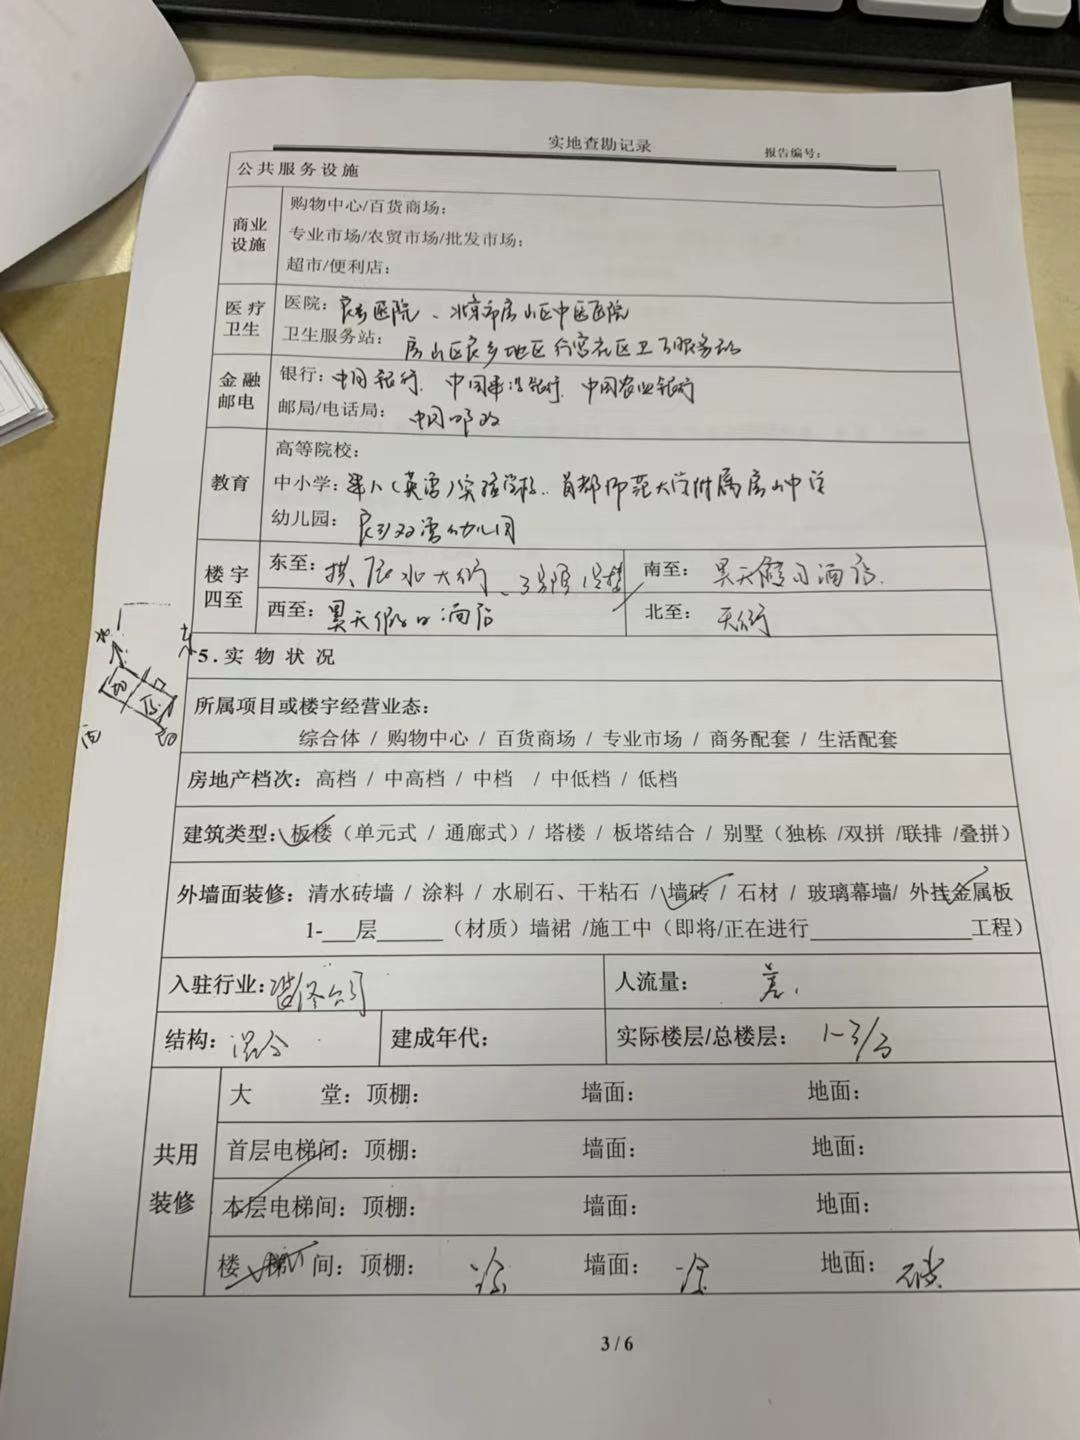 实地查勘记录
报告编号：
公共服务设施
商业设施
购物中心/百货商场：
专业市场/农贸市场/批发市场：
超市/便利店：
医疗卫生
医院：良乡医院、北京市房山区中医医院
卫生服务站：房山区良乡地区行宫社区卫生服务站
金融邮电
银行：中国银行、中国建设银行、中国农业银行
邮局/电话局：中国邮政
教育
高等院校：
中小学：(英语)实验学校、首都师范大学附属房山中学
幼儿园：良乡幼儿园
楼宇四至
东至：拱辰北大街、3号院1号楼
南至：昊天假日酒店
西至：昊天假日酒店
北至：天街
北
东
西
5.实物状况
所属项目或楼宇经营业态：
综合体 / 购物中心 / 百货商场 / 专业市场 / 商务配套 / 生活配套
房地产档次：高档 / 中高档 / 中档 / 中低档 / 低档
建筑类型：板楼（单元式 / 通廊式）/ 塔楼 / 板塔结合 / 别墅（独栋 /双拼 /联排 /叠拼）
外墙面装修：清水砖墙 / 涂料 / 水刷石、干粘石 / 墙砖 / 石材 / 玻璃幕墙/ 外挂金属板
1-___层______（材质）墙裙 /施工中（即将/正在进行_______________工程）
入驻行业：公司
人流量：差
结构：混合
建成年代：
实际楼层/总楼层：1-3/3
共用装修
大堂：顶棚： 墙面： 地面：
首层电梯间：顶棚： 墙面： 地面：
本层电梯间：顶棚： 墙面： 地面：
楼梯间：顶棚：涂 墙面：涂 地面：砖
3 / 6